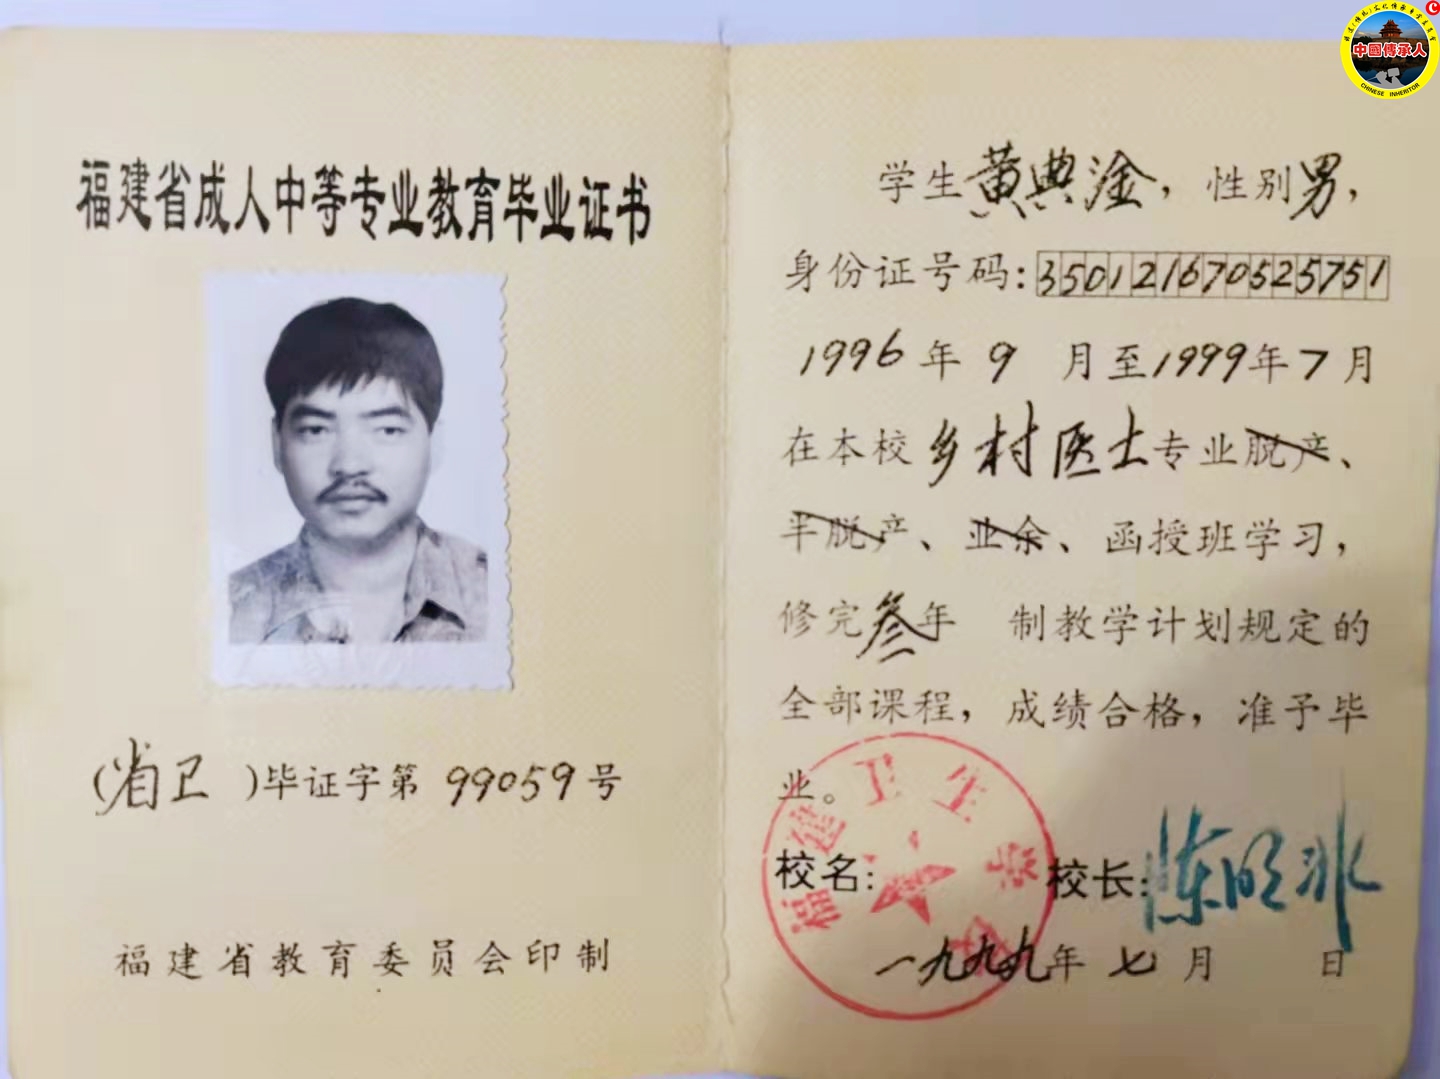 中國傳承人
CHINESE INHERITOR
福建省成人中等专业教育毕业证书
(省卫)毕证字第 99059 号
福建省教育委员会印制
学生黄典淦，性别男，
身份证号码：350121670525751
1996年9月至1999年7月
在本校乡村医士专业脱产、
半脱产、业余、函授班学习，
修完叁年制教学计划规定的
全部课程，成绩合格，准予毕
业。
福建卫生
校名：
校长：陈明
一九九九年七月 日